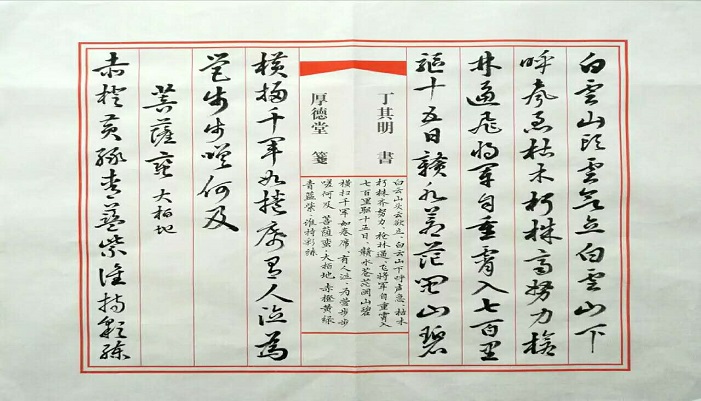 白雲山頭雲欲立白雲山下
呼聲急枯木朽株齊努力槍
林逼飛將軍自重霄入七百里
驅十五日贛水蒼茫閩山碧
丁其明 書
厚德堂 箋
白云山头云欲立,白云山下呼声急,枯木
朽株齐努力、枪林逼、飞将军自重霄入
七百里驱十五日、赣水苍茫闽山碧
横扫千军如卷席,有人泣、为营步步
嗟何及 菩萨蛮·大柏地 赤橙黄绿
青蓝紫、谁持彩练
橫掃千軍如捲席有人泣為
營步步嗟何及
菩薩蠻 大柏地
赤橙黃綠青藍紫誰持彩練